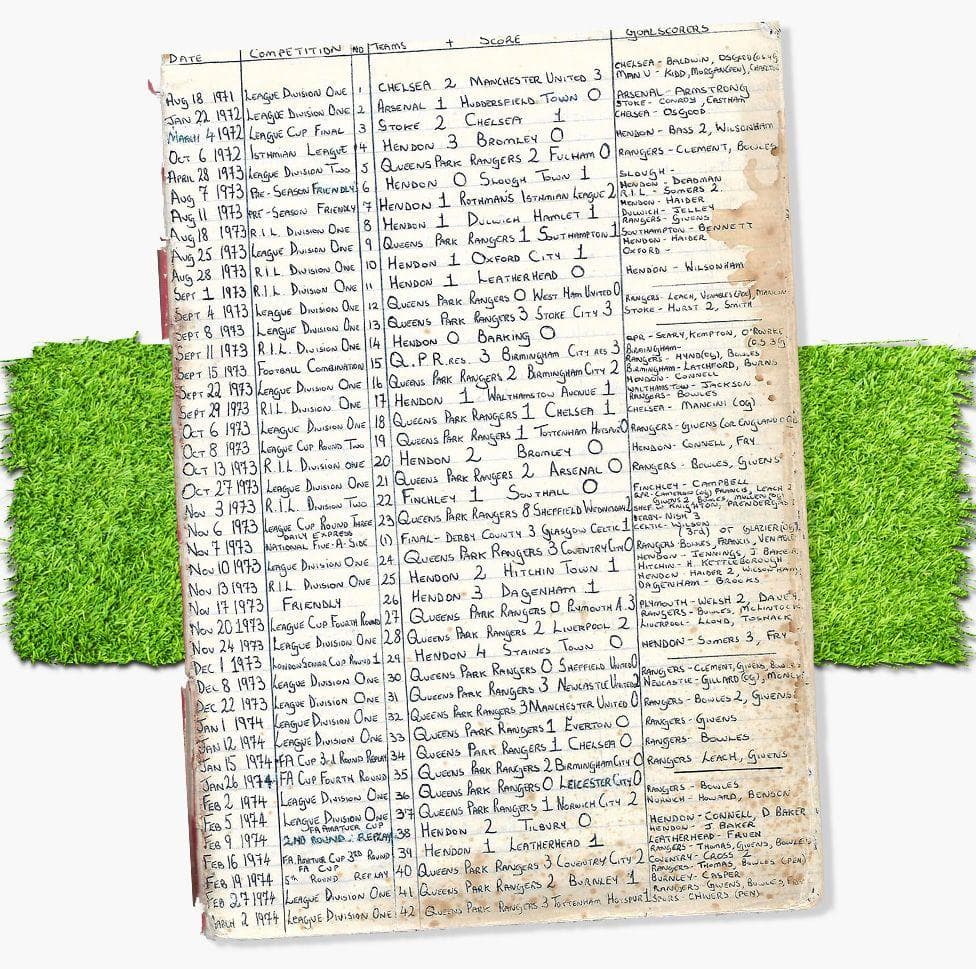 DATE COMPETITION NO TEAMS + SCORE GOALSCORERS
AUG 18 1971 LEAGUE DIVISION ONE 1 CHELSEA 2 MANCHESTER UNITED 3 CHELSEA - BALDWIN, OSGOOD MAN U - KIDD, MORGAN(PEN), CHARLTON
JAN 22 1972 LEAGUE DIVISION ONE 2 ARSENAL 1 HUDDERSFIELD TOWN 0 ARSENAL - ARMSTRONG
MARCH 4 1972 LEAGUE CUP FINAL 3 STOKE 2 CHELSEA 1 STOKE - CONROY, EASTHAM CHELSEA - OSGOOD
OCT 6 1972 ISTHMIAN LEAGUE 4 HENDON 3 BROMLEY 0 HENDON - BASS 2, WILSONHAM
APRIL 28 1973 LEAGUE DIVISION TWO 5 QUEENS PARK RANGERS 2 FULHAM 0 RANGERS - CLEMENT, BOWLES
AUG 7 1973 PRE-SEASON FRIENDLY 6 HENDON 0 SLOUGH TOWN 1 SLOUGH -
AUG 11 1973 PRE-SEASON FRIENDLY 7 HENDON 1 ROTHMAN'S ISTHMIAN LEAGUE 2 HENDON - DEADMAN R.I.L. - SOMERS 2.
AUG 18 1973 R.I.L. DIVISION ONE 8 HENDON 1 DULWICH HAMLET 1 HENDON - HAIDER DULWICH - JELLEY
AUG 25 1973 LEAGUE DIVISION ONE 9 QUEENS PARK RANGERS 1 SOUTHAMPTON 1 RANGERS - GIVENS SOUTHAMPTON - BENNETT
AUG 28 1973 R.I.L. DIVISION ONE 10 HENDON 1 OXFORD CITY 1 HENDON - HAIDER OXFORD -
SEPT 1 1973 R.I.L. DIVISION ONE 11 HENDON 1 LEATHERHEAD 0 HENDON - WILSONHAM
SEPT 4 1973 LEAGUE DIVISION ONE 12 QUEENS PARK RANGERS 0 WEST HAM UNITED 0
SEPT 8 1973 LEAGUE DIVISION ONE 13 QUEENS PARK RANGERS 3 STOKE CITY 3 RANGERS - LEACH, VENABLES(PEN), MANCINI STOKE - HURST 2, SMITH
SEPT 11 1973 R.I.L. DIVISION ONE 14 HENDON 0 BARKING 0
SEPT 15 1973 FOOTBALL COMBINATION 15 Q.P.R. RES. 3 BIRMINGHAM CITY RES 3 QPR - SEARY, KEMPTON, O'ROURKE BIRMINGHAM -
SEPT 22 1973 LEAGUE DIVISION ONE 16 QUEENS PARK RANGERS 2 BIRMINGHAM CITY 2 RANGERS - HYND(OG), BOWLES BIRMINGHAM - LATCHFORD, BURNS
SEPT 29 1973 R.I.L. DIVISION ONE 17 HENDON 1 WALTHAMSTOW AVENUE 1 HENDON - CONNELL WALTHAMSTOW - JACKSON
OCT 6 1973 LEAGUE DIVISION ONE 18 QUEENS PARK RANGERS 1 CHELSEA 1 RANGERS - BOWLES CHELSEA - MANCINI (OG)
OCT 8 1973 LEAGUE CUP ROUND TWO 19 QUEENS PARK RANGERS 1 TOTTENHAM HOTSPUR 0 RANGERS - GIVENS (OR ENGLAND OG)
OCT 13 1973 R.I.L. DIVISION ONE 20 HENDON 2 BROMLEY 0 HENDON - CONNELL, FRY.
OCT 27 1973 LEAGUE DIVISION ONE 21 QUEENS PARK RANGERS 2 ARSENAL 0 RANGERS - BOWLES, GIVENS
NOV 3 1973 R.I.L. DIVISION TWO 22 FINCHLEY 1 SOUTHALL 0 FINCHLEY - CAMPBELL
NOV 6 1973 LEAGUE CUP ROUND THREE 23 QUEENS PARK RANGERS 8 SHEFFIELD WEDNESDAY 2 QPR - CAMERON (OG) FRANCIS, LEACH 2 GIVENS 2, BOWLES, MULLEN(OG) SHEF W - KNIGHTON, PRENDERGAST
NOV 7 1973 DAILY EXPRESS NATIONAL FIVE-A-SIDE (1) FINAL - DERBY COUNTY 3 GLASGOW CELTIC 1 DERBY - NISH 3 CELTIC - WILSON
NOV 10 1973 LEAGUE DIVISION ONE 24 QUEENS PARK RANGERS 3 COVENTRY CITY 0 RANGERS BOWLES, FRANCIS, VENABLES (3RD) OR GLAZIER(OG).
NOV 13 1973 R.I.L. DIVISION ONE 25 HENDON 2 HITCHIN TOWN 1 HENDON - JENNINGS, J. BAKER HITCHIN - H. KETTLEBOROUGH
NOV 17 1973 FRIENDLY 26 HENDON 3 DAGENHAM 1 HENDON - HAIDER 2, WILSONHAM DAGENHAM - BROOKS
NOV 20 1973 LEAGUE CUP FOURTH ROUND 27 QUEENS PARK RANGERS 0 PLYMOUTH A. 3 PLYMOUTH - WELSH 2, DAVEY
NOV 24 1973 LEAGUE DIVISION ONE 28 QUEENS PARK RANGERS 2 LIVERPOOL 2 RANGERS - BOWLES, McLINTOCK LIVERPOOL - LLOYD, TOSHACK
DEC 1 1973 LONDON SENIOR CUP ROUND 1 29 HENDON 4 STAINES TOWN 0 HENDON - SOMERS 3, FRY
DEC 8 1973 LEAGUE DIVISION ONE 30 QUEENS PARK RANGERS 0 SHEFFIELD UNITED 0
DEC 22 1973 LEAGUE DIVISION ONE 31 QUEENS PARK RANGERS 3 NEWCASTLE UNITED 2 RANGERS - CLEMENT, GIVENS, BOWLES NEWCASTLE - GILLARD (OG), MONCUR
JAN 1 1974 LEAGUE DIVISION ONE 32 QUEENS PARK RANGERS 3 MANCHESTER UNITED 0 RANGERS - BOWLES 2, GIVENS
JAN 12 1974 LEAGUE DIVISION ONE 33 QUEENS PARK RANGERS 1 EVERTON 0 RANGERS - GIVENS
JAN 15 1974 FA CUP 3rd ROUND REPLAY 34 QUEENS PARK RANGERS 1 CHELSEA 0 RANGERS - BOWLES
JAN 26 1974 FA CUP FOURTH ROUND 35 QUEENS PARK RANGERS 2 BIRMINGHAM CITY 0 RANGERS LEACH, GIVENS
FEB 2 1974 LEAGUE DIVISION ONE 36 QUEENS PARK RANGERS 0 LEICESTER CITY 0
FEB 5 1974 LEAGUE DIVISION ONE 37 QUEENS PARK RANGERS 1 NORWICH CITY 2 RANGERS - BOWLES NORWICH - HOWARD, BENSON
FEB 9 1974 FA AMATUER CUP 2ND ROUND REPLAY 38 HENDON 2 TILBURY 0 HENDON - CONNELL, D BAKER
FEB 16 1974 FA AMATUER CUP 3RD ROUND 39 HENDON 1 LEATHERHEAD 1 HENDON - J. BAKER LEATHERHEAD - FRUEN
FEB 19 1974 FA CUP 5TH ROUND REPLAY 40 QUEENS PARK RANGERS 3 COVENTRY CITY 2 RANGERS - THOMAS, GIVENS, BOWLES COVENTRY - CROSS 2
FEB 27 1974 LEAGUE DIVISION ONE 41 QUEENS PARK RANGERS 2 BURNLEY 1 RANGERS - THOMAS, BOWLES (PEN) BURNLEY - CASPER
MARCH 2 1974 LEAGUE DIVISION ONE 42 QUEENS PARK RANGERS 3 TOTTENHAM HOTSPUR 1 RANGERS - GIVENS, BOWLES, SPURS - CHIVERS (PEN)